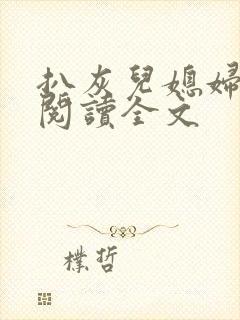 扒灰兒媳婦
閱讀全文
樸哲